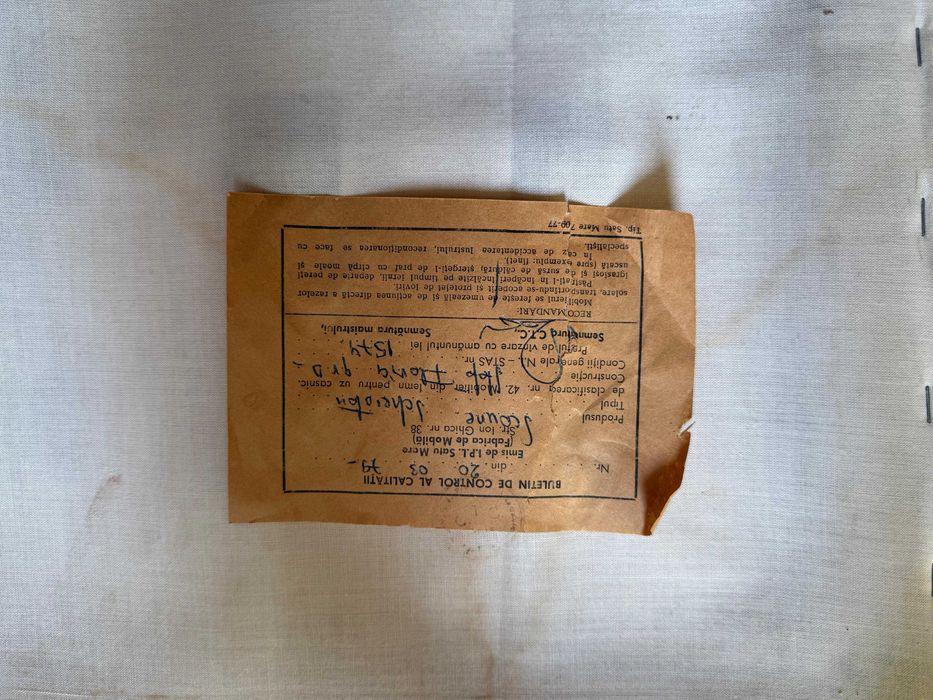 BULETIN DE CONTROL AL CALITĂȚII
Nr. din 20 03 79
Emis de I.P.L. Satu Mare
(Fabrica de Mobilă)
Str. Ion Ghica nr. 38
Produsul Scaune
Tipul
de clasificarea nr. 42. Mobilier din lemn pentru uz casnic.
Construcție
Condiții generale N.I. – STAS nr.
Prețul de vînzare cu amănuntul lei 1574.
Semnătura C.T.C., Semnătura maistrului,
RECOMANDĂRI:
Mobilierul se ferește de umezeală și de acțiunea directă a razelor
solare, transportîndu-se acoperit și protejat de loviri.
Păstrați-l în încăperi încălzite pe timpul iernii, departe de pereți
igrasioși și de sursă de căldură; ștergeți-l de praf cu cîrpă moale și
uscată (spre exemplu: finet).
În caz de accidentarea lustrului, recondiționarea se face cu
specialiști.
Tip. Satu Mare 700-77